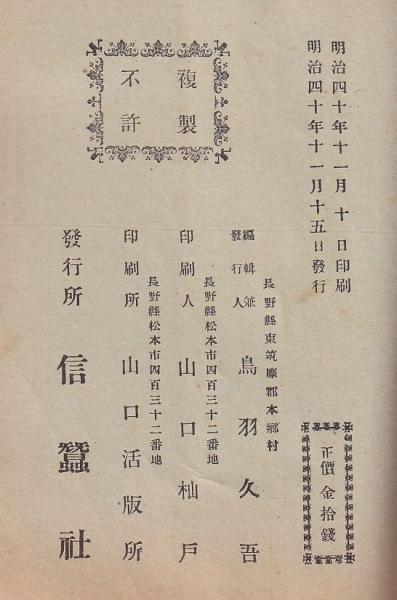 明治四十年十一月十日印刷
明治四十年十一月十五日發行
正價金拾錢
複製
不許
長野縣東筑摩郡本鄕村
編輯兼
發行人
鳥羽久吾
長野縣松本市四百三十二番地
印刷人 山口杣戶
長野縣松本市四百三十二番地
印刷所 山口活版所
發行所 信蠶社